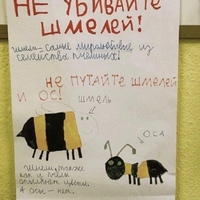 НЕ УБИВАЙТЕ
ШМЕЛЕЙ!
шмели - самые миролюбивые из
семейства пчелиных!
НЕ ПУТАЙТЕ ШМЕЛЕЙ
И ОС!
шмель
ОСА
Шмели, также
как и пчёлы
опыляют цветы.
А осы - нет.